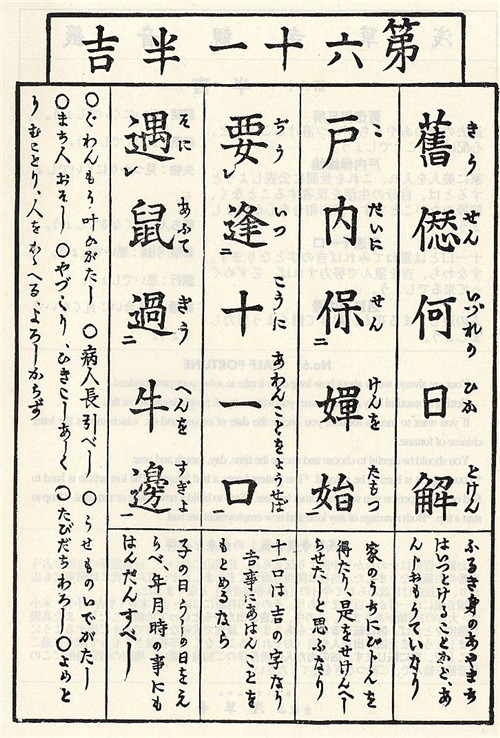 第六十一半吉
舊僁何日解
きう せん いづれの ひか とけん
ふるき身のあやまち
はいつとけることかと、あ
んじおもうていなり
戸内保二嬋始一
だいに せん けんを たもつ
家のうちにびじんを
得たり、是をせけんへし
らせたいと思ふなり
要レ逢二十一口一
ぢう いつ こうに あわんことをようせば
十一口は吉の字なり
吉事にあはんことを
もとめるなら
遇レ鼠過二牛邊一
そに あふて ぎう へんを すぎよ
子の日うしの日をえ
らべ、年月時の事にも
はんだんすべし
○ぐわんもう叶ひがたし ○病人長引べし ○うせものいでがたし
○まち人おそし ○やづくり、ひきこしあしく ○たびだちわろし ○よめと
りむことり、人をかゝへる、よろしからず